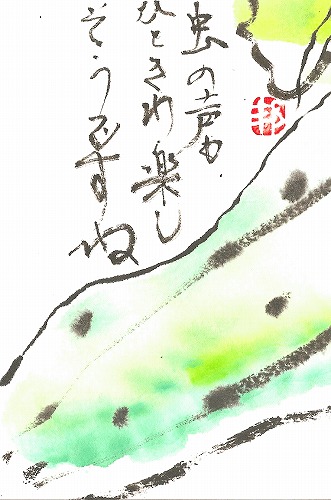 虫の声も
ひときわ楽し
そうですね